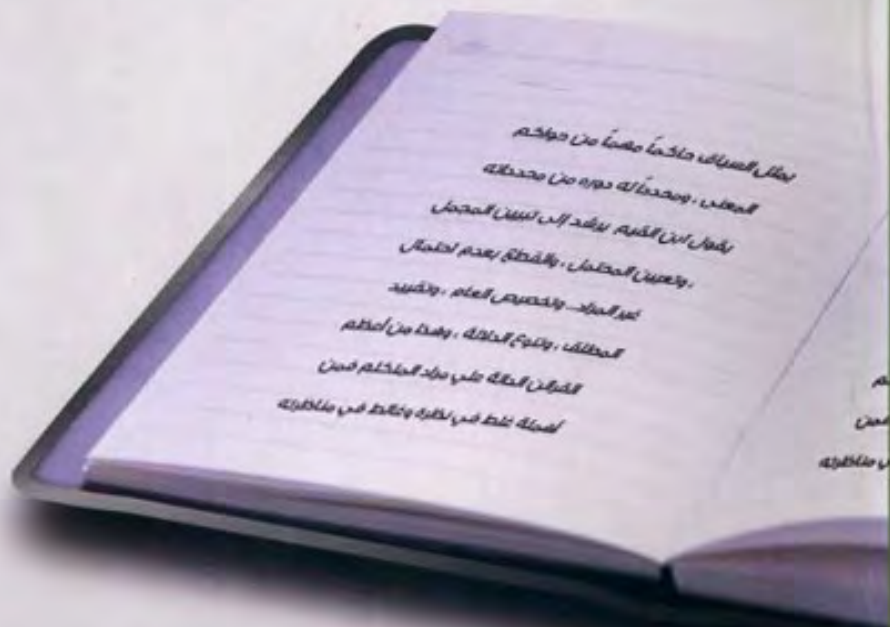 يمثل السياق حاكماً مهماً من حواكم
المعنى ، ومحدداً له دوره من محدداته
يقول ابن القيم يرشد إلى تبيين المجمل
، وتعيين المحتمل ، والقطع بعدم احتمال
غير المراد.. وتخصيص العام ، وتقييد
المطلق ، وتنوع الدلالة ، وهذا من أعظم
القرائن الدالة علي مراد المتكلم فمن
أهمله غلط في نظره وغالط في مناظرته
فمن
ي مناظرته